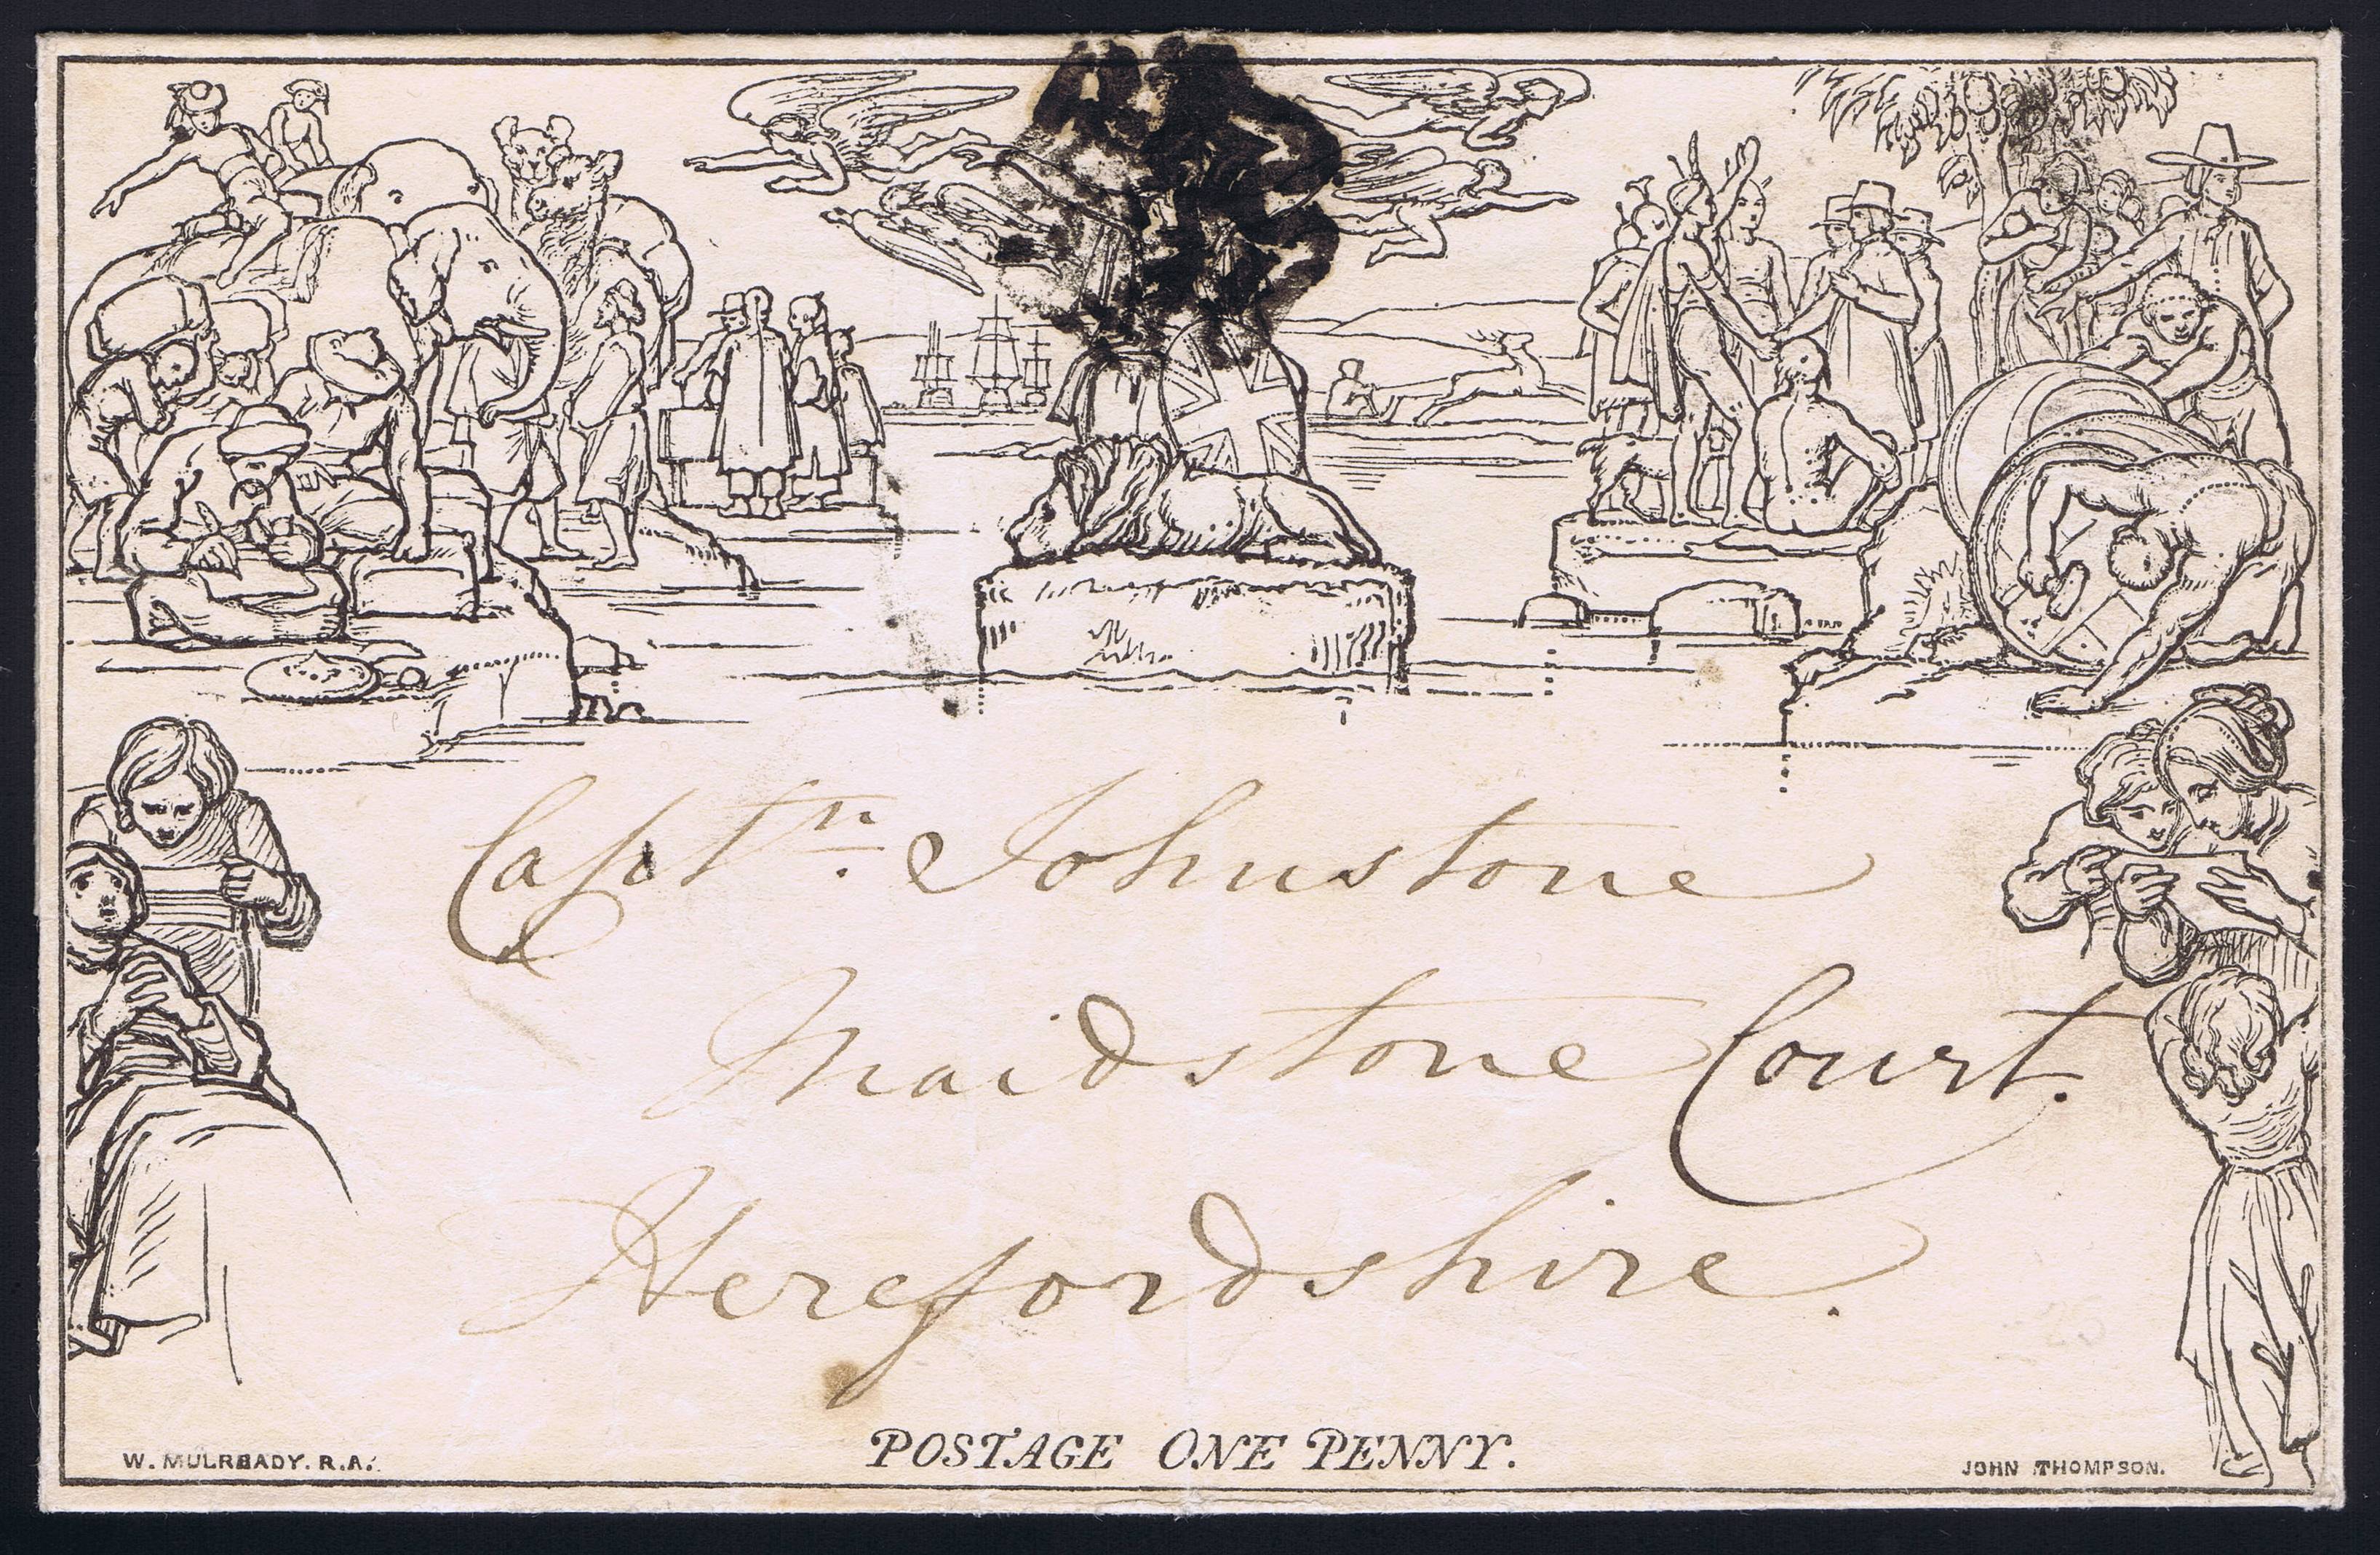 Captn. Johnstone
Maidstone Court.
Herefordshire.
POSTAGE ONE PENNY.
W. MULREADY. R.A.
JOHN THOMPSON.